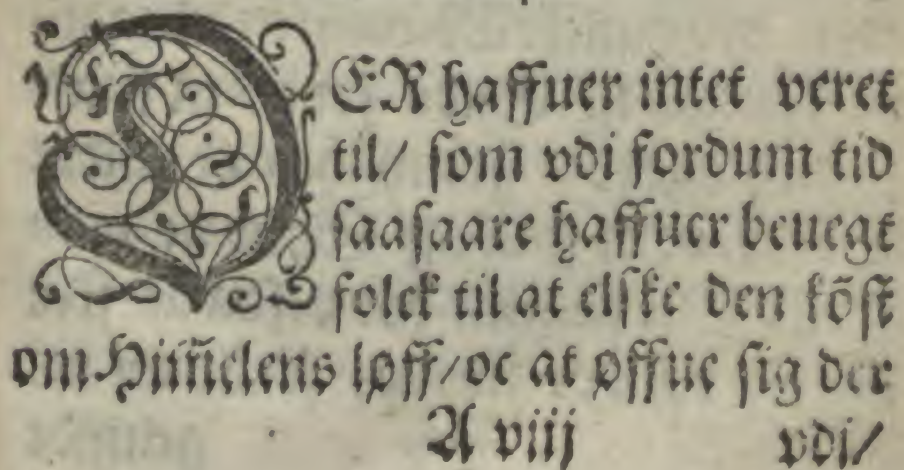 DER haffuer intet veret
til/ som vdi fordum tid
saasaare haffuer beuegt
folck til at elske den kõst
om Him̃elens løff/oc at øffue sig der
A viij vdi/